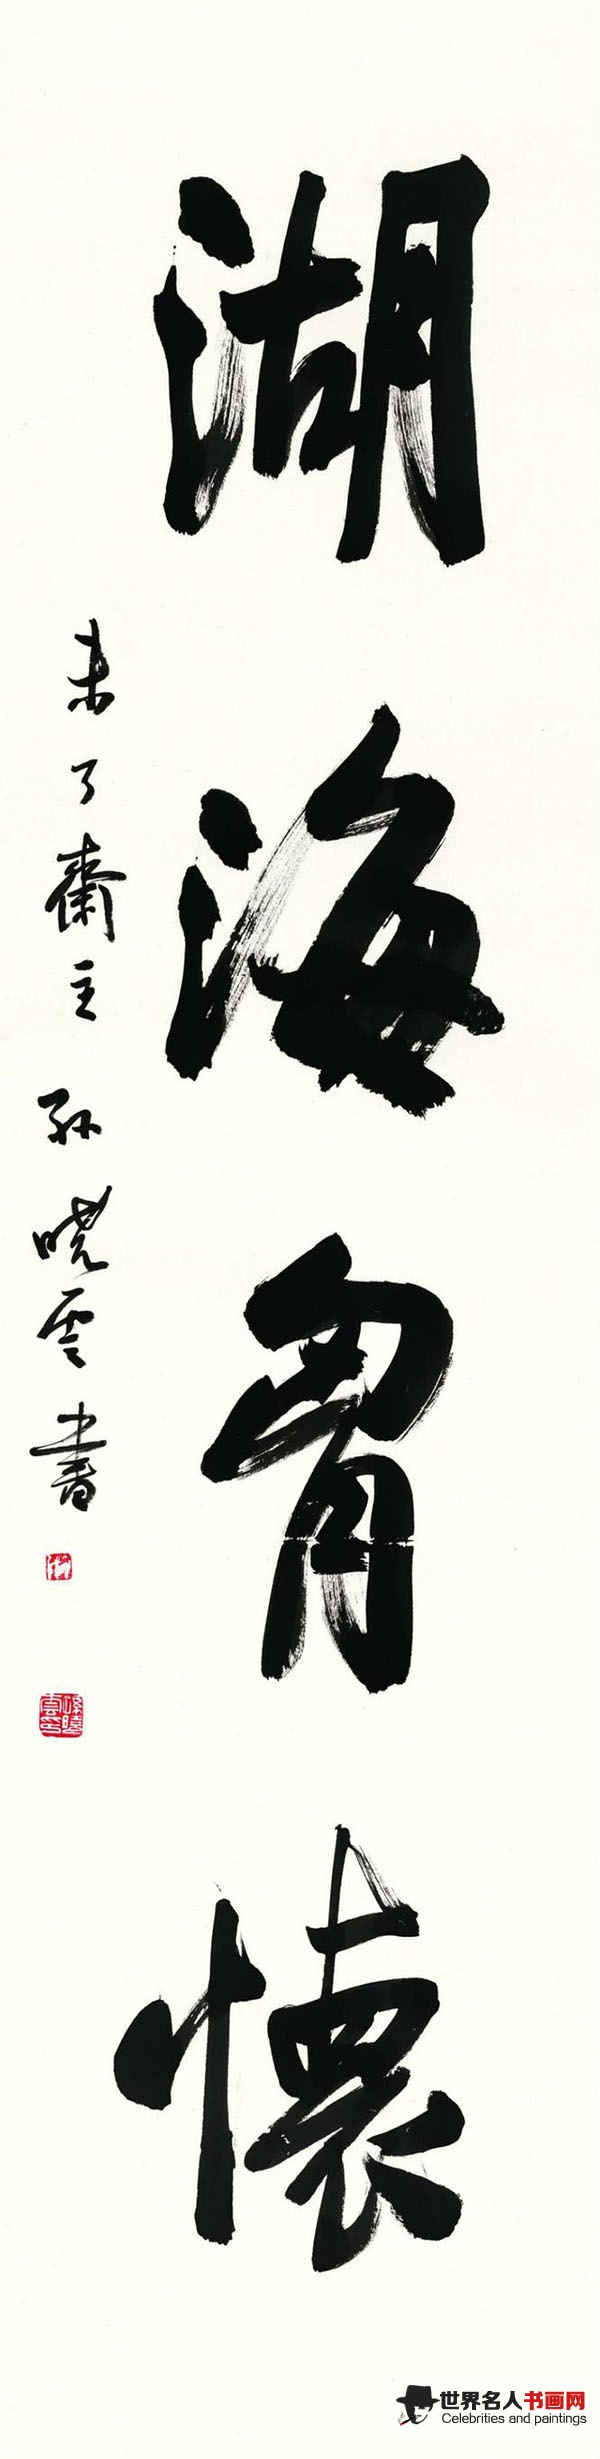 湖海胷懷
未了齋主孫曉雲書
孫曉雲印
世界名人书画网
Celebrities and paintings